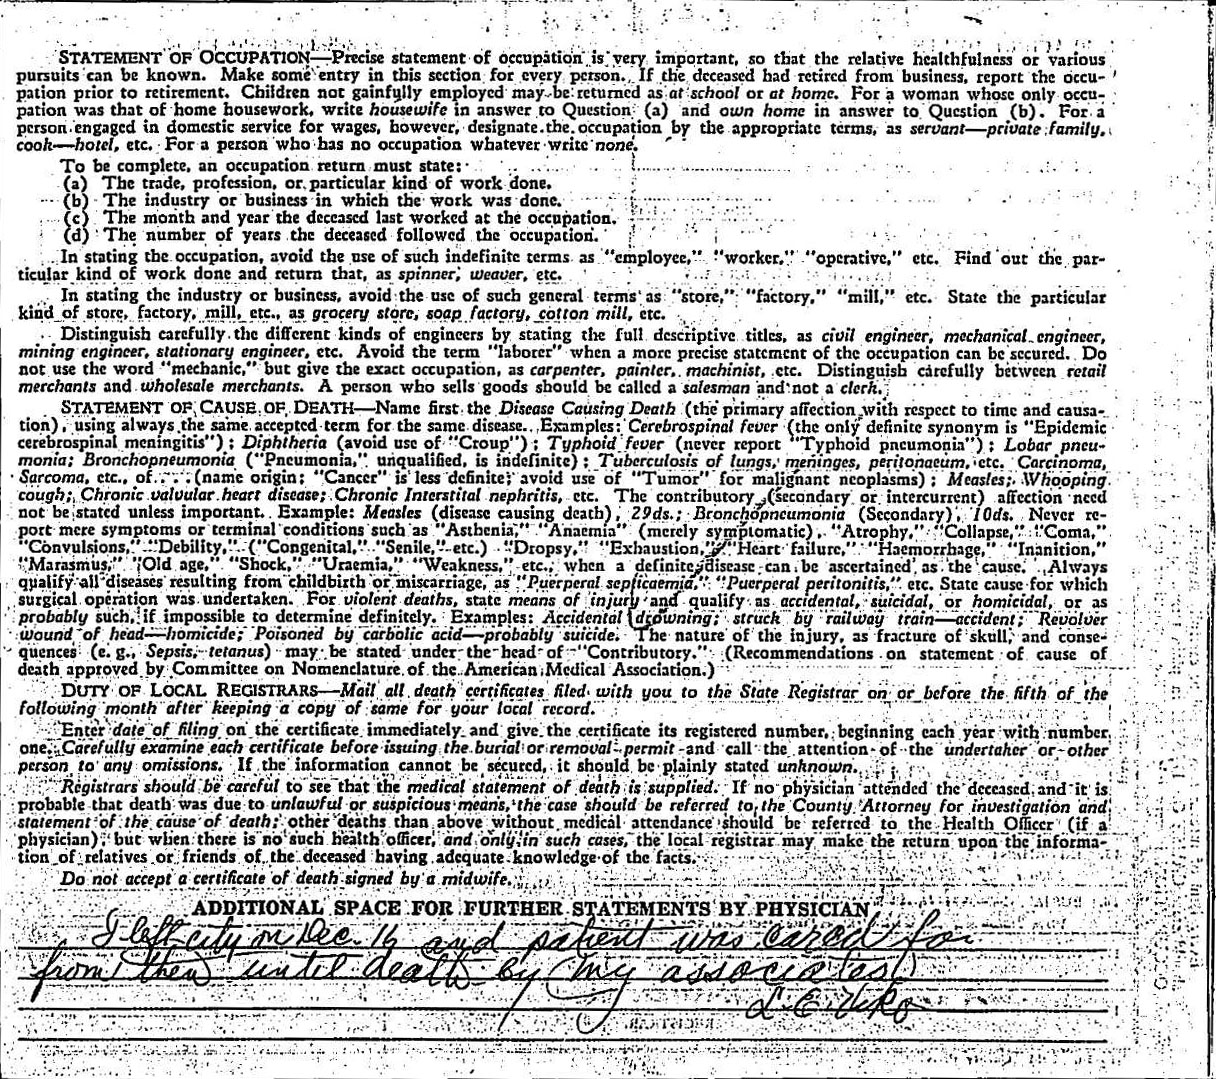 STATEMENT OF OCCUPATION—Precise statement of occupation is very important, so that the relative healthfulness or various
pursuits can be known. Make some entry in this section for every person. If the deceased had retired from business, report the occu-
pation prior to retirement. Children not gainfully employed may be returned as at school or at home. For a woman whose only occu-
pation was that of home housework, write housewife in answer to Question (a) and own home in answer to Question (b). For a
person engaged in domestic service for wages, however, designate the occupation by the appropriate terms, as servant—private family,
cook—hotel, etc. For a person who has no occupation whatever write none.
To be complete, an occupation return must state:
(a) The trade, profession, or particular kind of work done.
(b) The industry or business in which the work was done.
(c) The month and year the deceased last worked at the occupation.
(d) The number of years the deceased followed the occupation.
In stating the occupation, avoid the use of such indefinite terms as "employee," "worker," "operative," etc. Find out the par-
ticular kind of work done and return that, as spinner, weaver, etc.
In stating the industry or business, avoid the use of such general terms as "store," "factory," "mill," etc. State the particular
kind of store, factory, mill, etc., as grocery store, soap factory, cotton mill, etc.
Distinguish carefully the different kinds of engineers by stating the full descriptive titles, as civil engineer, mechanical engineer,
mining engineer, stationary engineer, etc. Avoid the term "laborer" when a more precise statement of the occupation can be secured. Do
not use the word "mechanic," but give the exact occupation, as carpenter, painter, machinist, etc. Distinguish carefully between retail
merchants and wholesale merchants. A person who sells goods should be called a salesman and not a clerk.
STATEMENT OF CAUSE OF DEATH—Name first the Disease Causing Death (the primary affection with respect to time and causa-
tion), using always the same accepted term for the same disease. Examples: Cerebrospinal fever (the only definite synonym is "Epidemic
cerebrospinal meningitis"); Diphtheria (avoid use of "Croup"); Typhoid fever (never report "Typhoid pneumonia"); Lobar pneu-
monia; Bronchopneumonia ("Pneumonia," unqualified, is indefinite); Tuberculosis of lungs, meninges, peritonaeum, etc. Carcinoma,
Sarcoma, etc., of . . . (name origin; "Cancer" is less definite; avoid use of "Tumor" for malignant neoplasms); Measles; Whooping
cough; Chronic valvular heart disease; Chronic Interstital nephritis, etc. The contributory (secondary or intercurrent) affection need
not be stated unless important. Example: Measles (disease causing death), 29ds.; Bronchopneumonia (Secondary), 10ds. Never re-
port mere symptoms or terminal conditions such as "Asthenia," "Anaemia" (merely symptomatic), "Atrophy," "Collapse," "Coma,"
"Convulsions," "Debility," ("Congenital," "Senile," etc.) "Dropsy," "Exhaustion," "Heart failure," "Haemorrhage," "Inanition,"
"Marasmus," "Old age," "Shock," "Uraemia," "Weakness," etc., when a definite disease can be ascertained as the cause. Always
qualify all diseases resulting from childbirth or miscarriage, as "Puerperal septicaemia," "Puerperal peritonitis," etc. State cause for which
surgical operation was undertaken. For violent deaths, state means of injury and qualify as accidental, suicidal, or homicidal, or as
probably such, if impossible to determine definitely. Examples: Accidental drowning; struck by railway train—accident; Revolver
wound of head—homicide; Poisoned by carbolic acid—probably suicide. The nature of the injury, as fracture of skull, and conse-
quences (e. g., Sepsis, tetanus) may be stated under the head of "Contributory." (Recommendations on statement of cause of
death approved by Committee on Nomenclature of the American Medical Association.)
DUTY OF LOCAL REGISTRARS—Mail all death certificates filed with you to the State Registrar on or before the fifth of the
following month after keeping a copy of same for your local record.
Enter date of filing on the certificate immediately and give the certificate its registered number, beginning each year with number
one. Carefully examine each certificate before issuing the burial or removal permit and call the attention of the undertaker or other
person to any omissions. If the information cannot be secured, it should be plainly stated unknown.
Registrars should be careful to see that the medical statement of death is supplied. If no physician attended the deceased and it is
probable that death was due to unlawful or suspicious means, the case should be referred to the County Attorney for investigation and
statement of the cause of death; other deaths than above without medical attendance should be referred to the Health Officer (if a
physician); but when there is no such health officer, and only in such cases, the local registrar may make the return upon the informa-
tion of relatives or friends of the deceased having adequate knowledge of the facts.
Do not accept a certificate of death signed by a midwife.
ADDITIONAL SPACE FOR FURTHER STATEMENTS BY PHYSICIAN
I left city on Dec. 16 and patient was cared for
from then until death by my associates
L. E. Viko